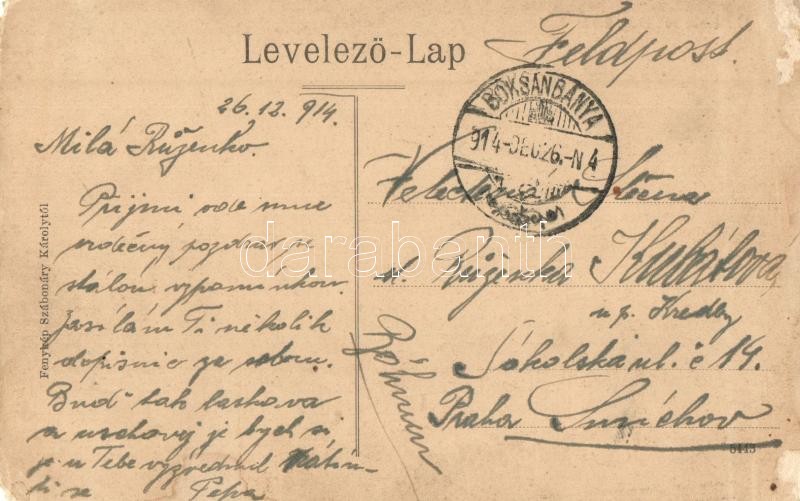 Levelező-Lap
Feldpost.
BOKSÁNBÁNYA
914-DEC 26.-N 4
26.12.914.
Milá Růženko.
Přijmi ode mne
srdečný pozdrav se
stálou vzpomínkou.
Zasílám Ti několik
dopisnic za sebou.
Buď tak laskava
a uschovej je bych si
je u Tebe vyzvednul
Pepa
Velectěná Slečna
sl. Růženka Kubátová
u p.
Sokolská ul. č 14.
Praha Smíchov
Böhmen
Fenykép Szábonáry Károlytól
5443
darabanth